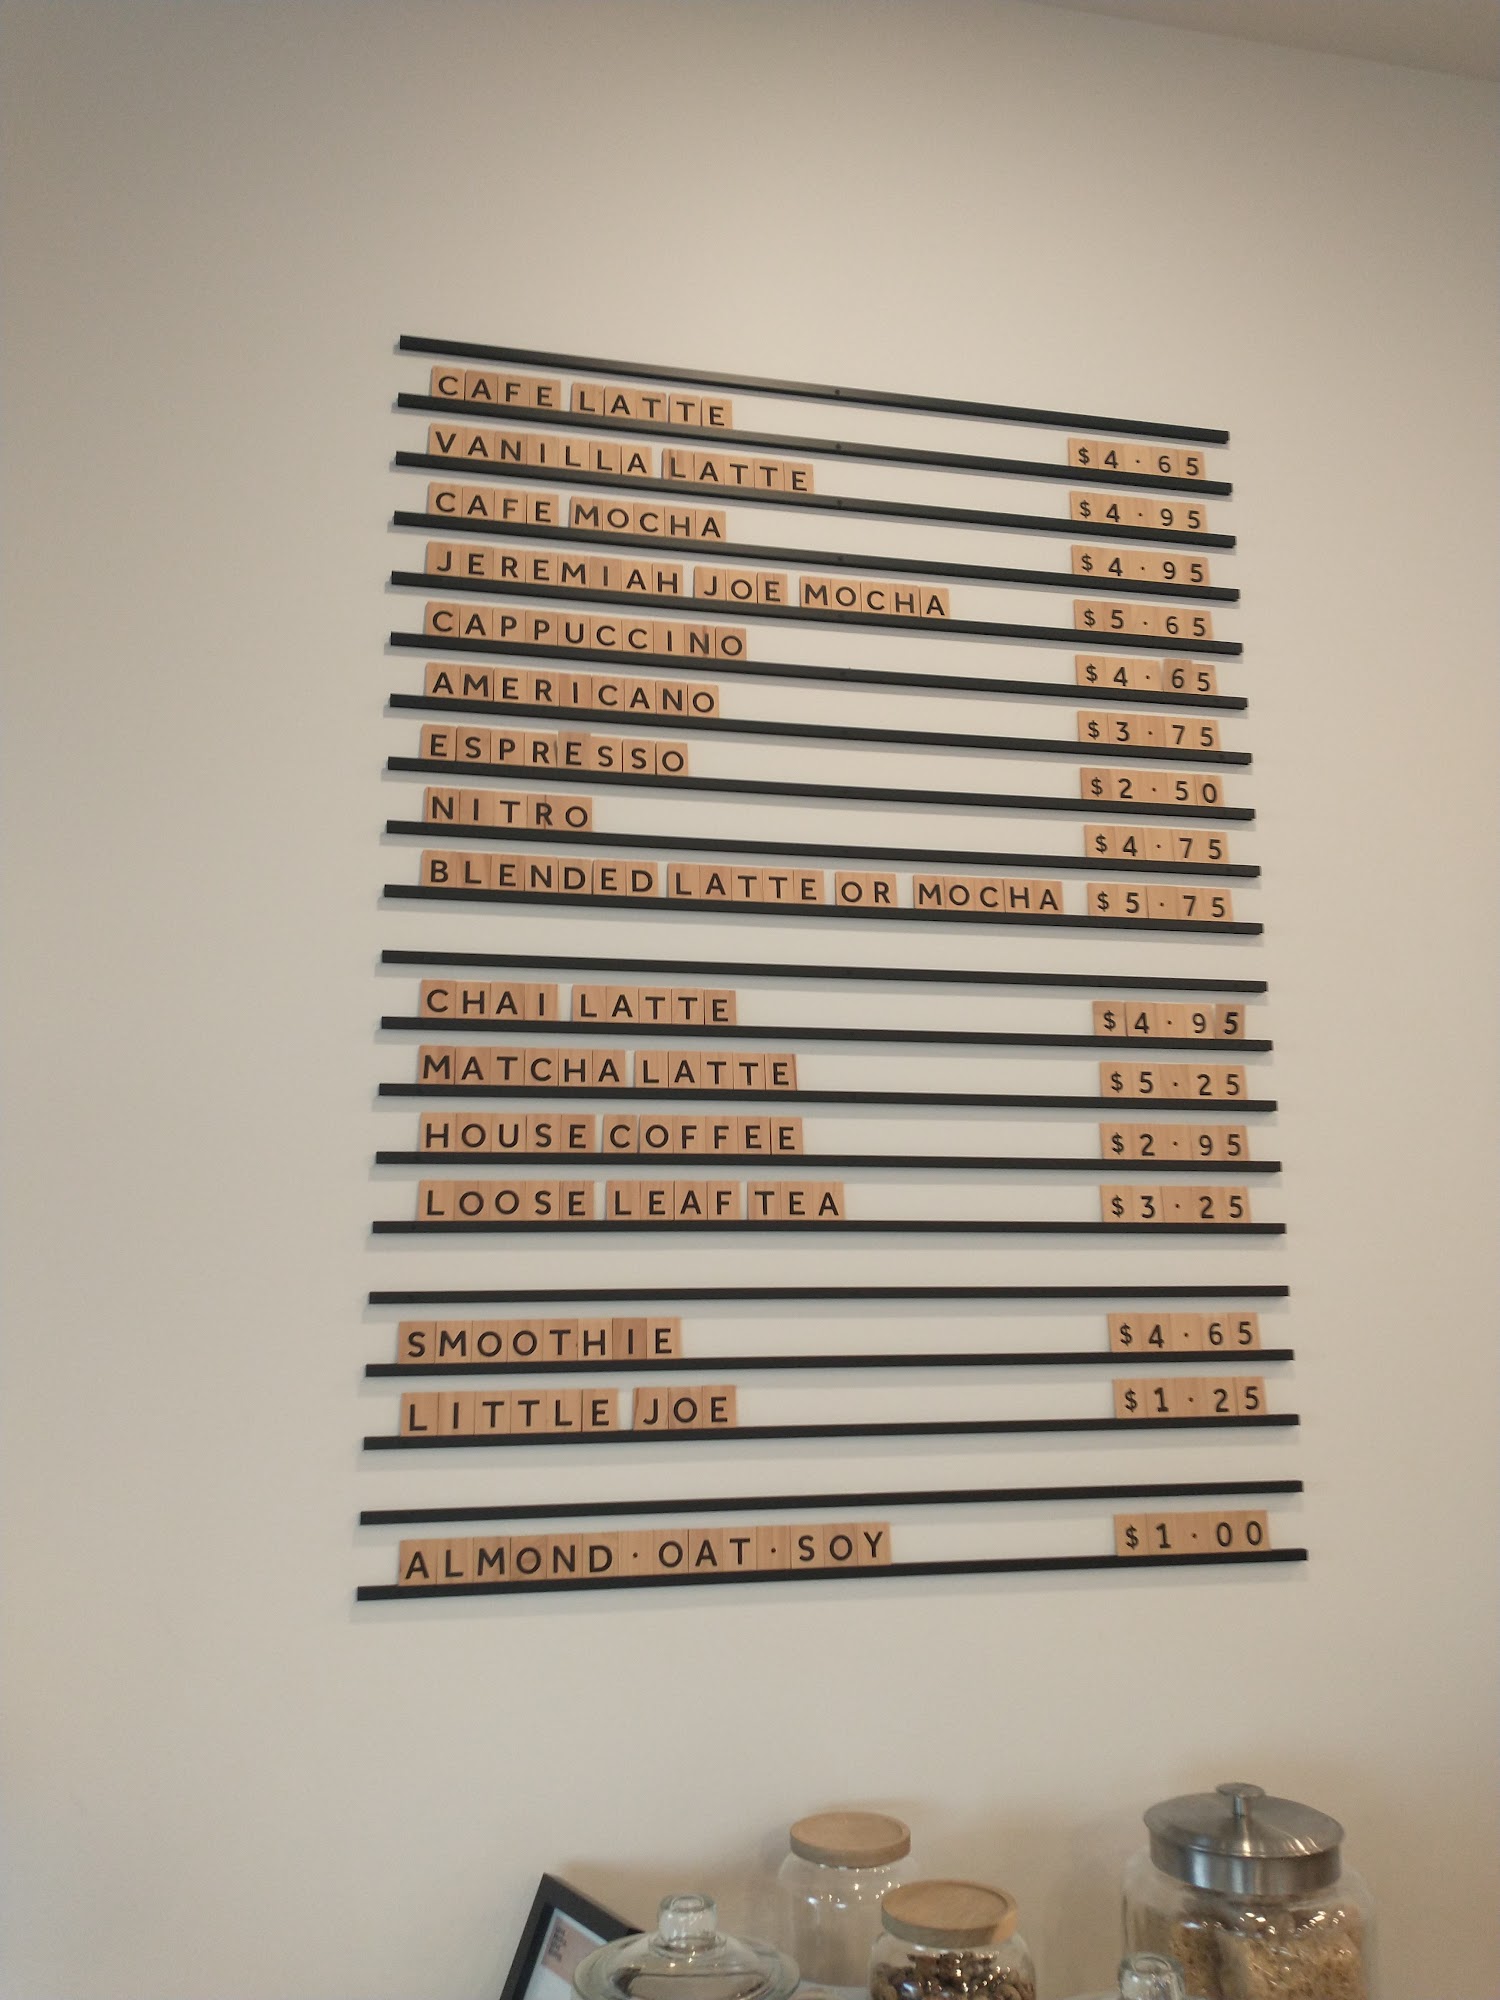 CAFE LATTE $4.65
VANILLA LATTE $4.95
CAFE MOCHA $4.95
JEREMIAH JOE MOCHA $5.65
CAPPUCCINO $4.65
AMERICANO $3.75
ESPRESSO $2.50
NITRO $4.75
BLENDED LATTE OR MOCHA $5.75
CHAI LATTE $4.95
MATCHA LATTE $5.25
HOUSE COFFEE $2.95
LOOSE LEAF TEA $3.25
SMOOTHIE $4.65
LITTLE JOE $1.25
ALMOND·OAT·SOY $1.00